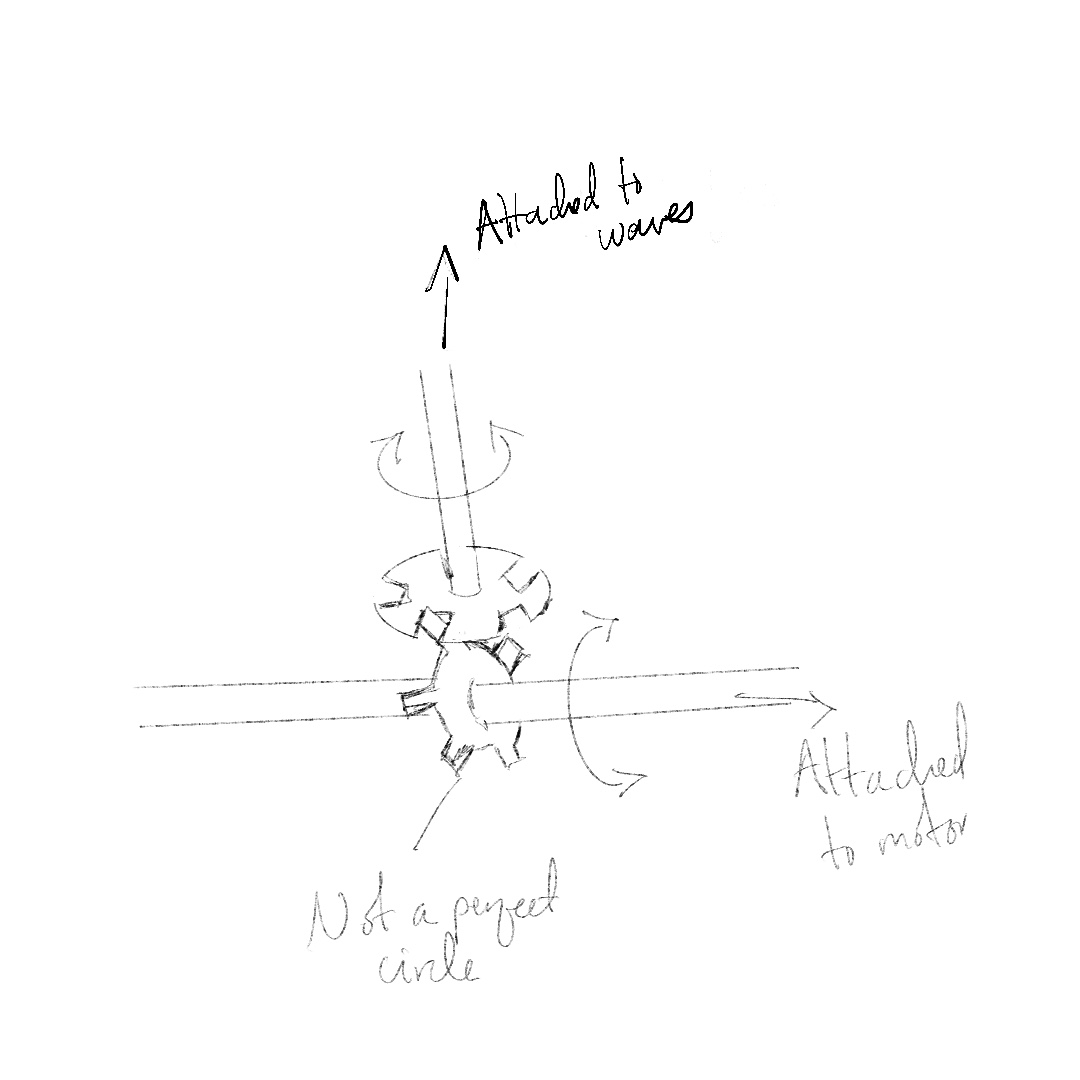 Attached to
waves
Attached
to motor
Not a perfect
circle